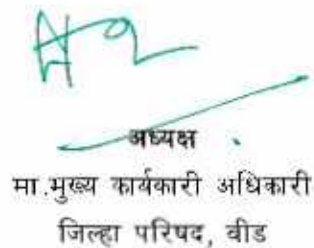 अध्यक्ष
मा.मुख्य कार्यकारी अधिकारी
जिल्हा परिषद, बीड